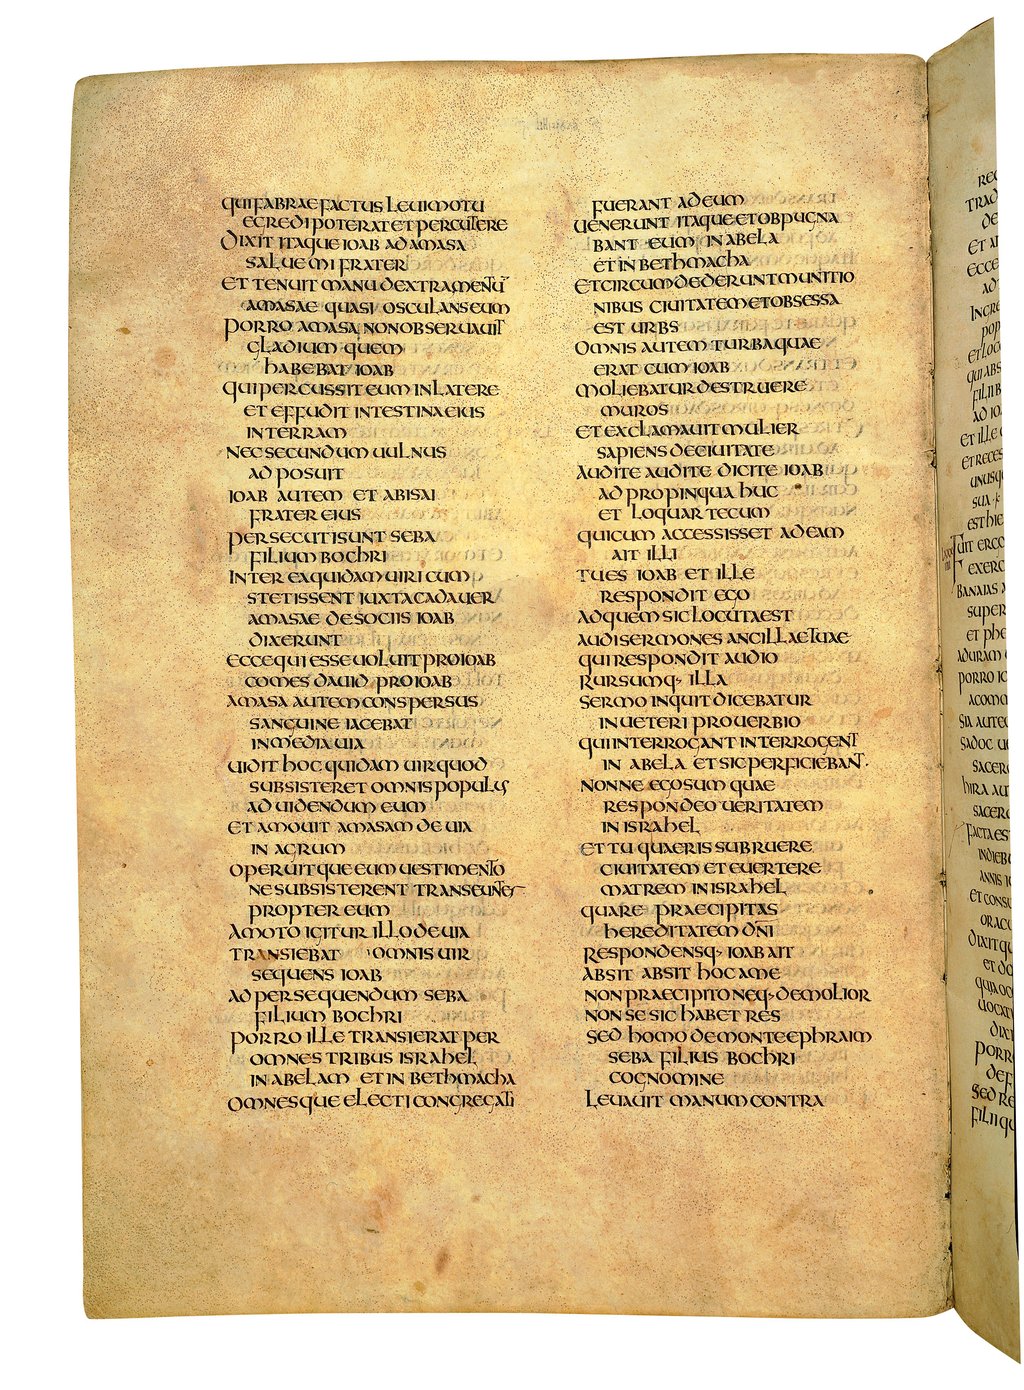 QUI FABRAE FACTUS LEUI MOTU
EGREDI POTERAT ET PERCUTERE
DIXIT ITAQUE IOAB AD AMASA
SALUE MI FRATER
ET TENUIT MANU DEXTRA MENTŪ
AMASAE QUASI OSCULANS EUM
PORRO AMASA NON OBSERUAUIT
GLADIUM QUEM
HABEBAT IOAB
QUI PERCUSSIT EUM IN LATERE
ET EFFUDIT INTESTINA EIUS
IN TERRAM
NEC SECUNDUM UULNUS
ADPOSUIT
IOAB AUTEM ET ABISAI
FRATER EIUS
PERSECUTI SUNT SEBA
FILIUM BOCHRI
INTEREA QUIDAM UIRI CUM
STETISSENT IUXTA CADAUER
AMASAE DE SOCIIS IOAB
DIXERUNT
ECCE QUI ESSE UOLUIT PRO IOAB
COMES DAUID PRO IOAB
AMASA AUTEM CONSPERSUS
SANGUINE IACEBAT
IN MEDIA UIA
UIDIT HOC QUIDAM UIR QUOD
SUBSISTERET OMNIS POPULUS
AD UIDENDUM EUM
ET AMOUIT AMASAM DE UIA
IN AGRUM
OPERUITQUE EUM UESTIMENTO
NE SUBSISTERENT TRANSEUNTES
PROPTER EUM
AMOTO IGITUR ILLO DE UIA
TRANSIEBAT OMNIS UIR
SEQUENS IOAB
AD PERSEQUENDUM SEBA
FILIUM BOCHRI
PORRO ILLE TRANSIERAT PER
OMNES TRIBUS ISRAHEL
IN ABELAM ET IN BETHMACHA
OMNESQUE ELECTI CONGREGATI
FUERANT AD EUM
UENERUNT ITAQUE ET OBPUGNA
BANT EUM IN ABELA
ET IN BETHMACHA
ET CIRCUMDEDERUNT MUNITIO
NIBUS CIUITATEM ET OBSESSA
EST URBS
OMNIS AUTEM TURBA QUAE
ERAT CUM IOAB
MOLIEBATUR DESTRUERE
MUROS
ET EXCLAMAUIT MULIER
SAPIENS DE CIUITATE
AUDITE AUDITE DICITE IOAB
ADPROPINQUA HUC
ET LOQUAR TECUM
QUI CUM ACCESSISSET AD EAM
AIT ILLI
TU ES IOAB ET ILLE
RESPONDIT EGO
AD QUEM SIC LOCUTA EST
AUDI SERMONES ANCILLAE TUAE
QUI RESPONDIT AUDIO
RURSUMQ· ILLA
SERMO INQUIT DICEBATUR
IN UETERI PROUERBIO
QUI INTERROGANT INTERROGENT
IN ABELA ET SIC PERFICIEBANT·
NONNE EGO SUM QUAE
RESPONDEO UERITATEM
IN ISRAHEL
ET TU QUAERIS SUBRUERE
CIUITATEM ET EUERTERE
MATREM IN ISRAHEL
QUARE PRAECIPITAS
HEREDITATEM DN̄I
RESPONDENSQ· IOAB AIT
ABSIT ABSIT HOC A ME
NON PRAECIPITO NEQ· DEMOLIOR
NON SE SIC HABET RES
SED HOMO DE MONTE EPHRAIM
SEBA FILIUS BOCHRI
COGNOMINE
LEUAUIT MANUM CONTRA